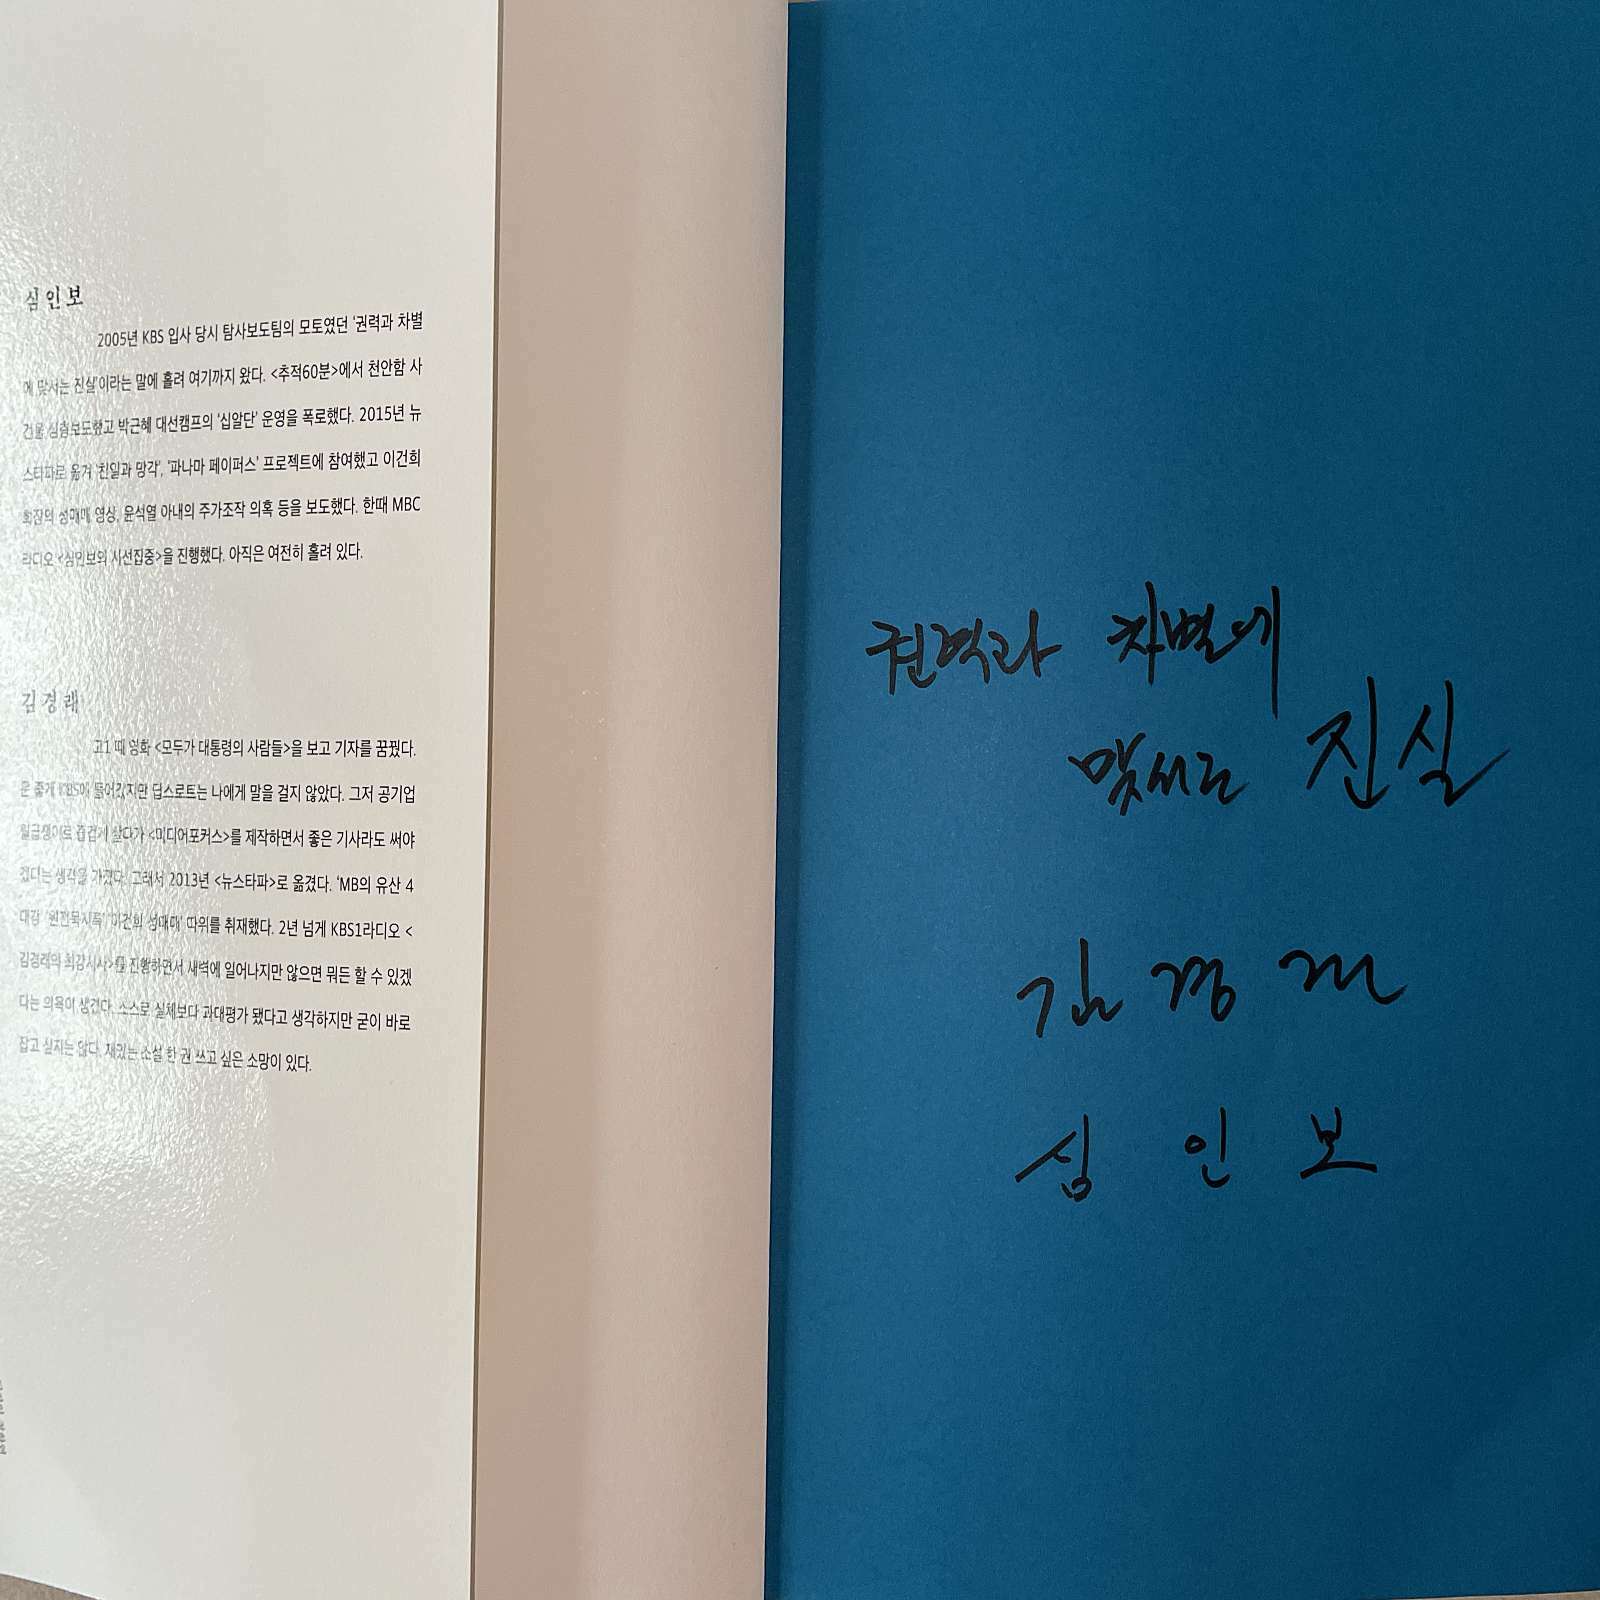 심인보
2005년 KBS 입사 당시 탐사보도팀의 모토였던 '권력과 차별
에 맞서는 진실'이라는 말에 홀려 여기까지 왔다. <추적60분>에서 천안함 사
건을 심층보도했고 박근혜 대선캠프의 '십알단' 운영을 폭로했다. 2015년 뉴
스타파로 옮겨 '친일과 망각', '파나마 페이퍼스' 프로젝트에 참여했고 이건희
회장의 성매매 영상, 윤석열 아내의 주가조작 의혹 등을 보도했다. 한때 MBC
라디오 <심인보의 시선집중>을 진행했다. 아직은 여전히 홀려 있다.
김경래
고1 때 영화 <모두가 대통령의 사람들>을 보고 기자를 꿈꿨다.
운 좋게 KBS에 들어갔지만 딥스로트는 나에게 말을 걸지 않았다. 그저 공기업
월급쟁이로 즐겁게 살다가 <미디어포커스>를 제작하면서 좋은 기사라도 써야
겠다는 생각을 가졌다. 그래서 2013년 <뉴스타파>로 옮겼다. 'MB의 유산 4
대강' '원전묵시록' '이건희 성매매' 따위를 취재했다. 2년 넘게 KBS1라디오 <
김경래의 최강시사>를 진행하면서 새벽에 일어나지만 않으면 뭐든 할 수 있겠
다는 의욕이 생겼다. 스스로 실제보다 과대평가 됐다고 생각하지만 굳이 바로
잡고 싶지는 않다. 재밌는 소설 한 권 쓰고 싶은 소망이 있다.
권력과 차별에
맞서는 진실
김경래
심인보